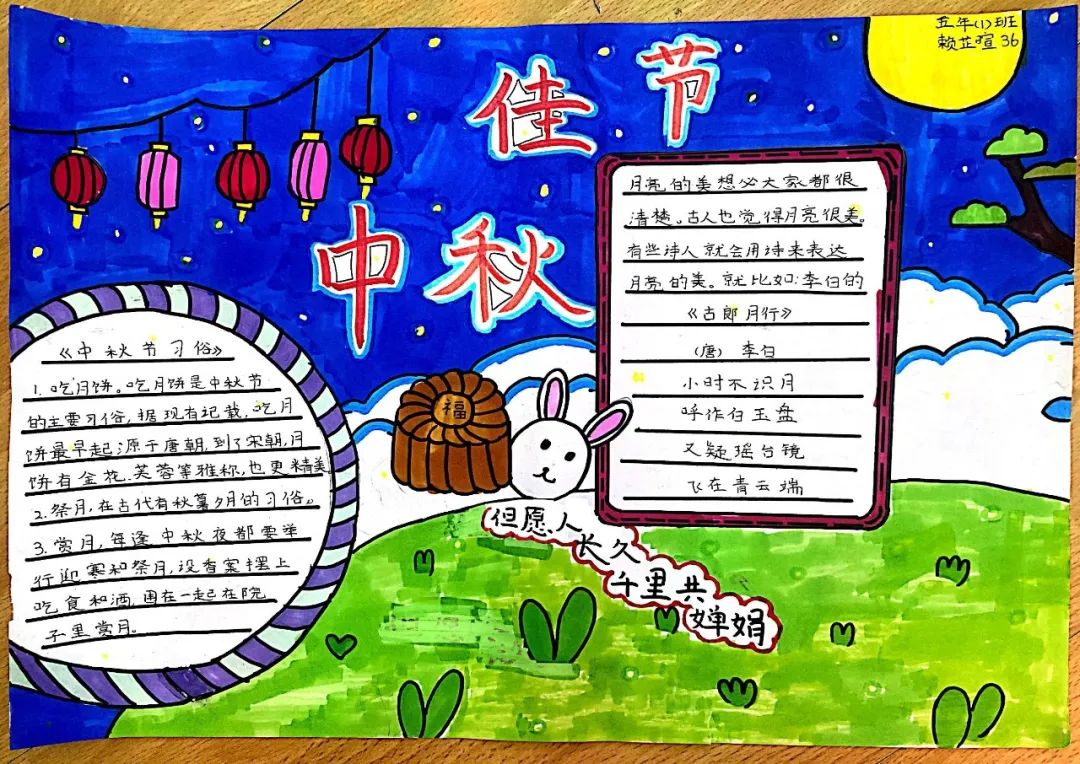 五年(1)班
赖芷暄 36
佳节
中秋
月亮的美想必大家都很
清楚。古人也觉得月亮很美。
有些诗人就会用诗来表达
月亮的美。就比如:李白的
《古郎月行》
(唐) 李白
小时不识月
呼作白玉盘
又疑瑶台镜
飞在青云端
《中秋节习俗》
1.吃月饼。吃月饼是中秋节
的主要习俗,据现有记载,吃月
饼最早起源于唐朝,到了宋朝,月
饼有金花、芙蓉等雅称,也更精美
2.祭月,在古代有秋暮夕月的习俗。
3.赏月,每逢中秋夜都要举
行迎寒和祭月,设香案摆上
吃食和酒,围在一起在院
子里赏月.
福
但愿人
长久
千里共
婵娟